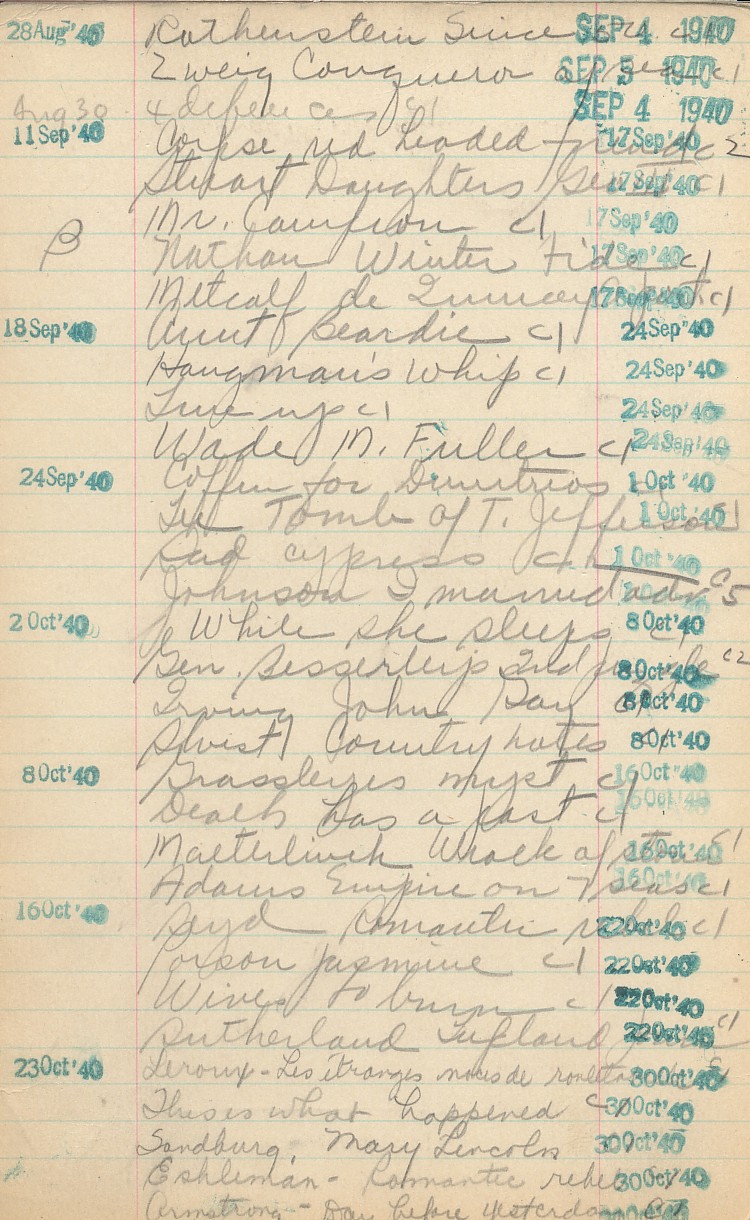 28Aug'40 Rothenstein Since c1 SEP 4 1940
Zweig Conqueror of seas c1 SEP 5 1940
Aug 30 4 defences c1 SEP 4 1940
11Sep'40 Corpse red headed c2 17Sep'40
Stuart Daughters c1 17Sep'40
Mr. Campion c1 17Sep'40
B Nathan Winter Tide c1 17Sep'40
Metcalf de Quincey c1 17Sep'40
18Sep'40 Aunt Beardie c1 24Sep'40
Hangman's Whip c1 24Sep'40
Line up c1 24Sep'40
Wade M. Fuller c1 24Sep'40
24Sep'40 Coffin for Dimitrios 1Oct'40
Lee Tomb of T. Jefferson c1 1Oct'40
Sad cypress c1 1Oct'40
Johnson I married adv c5
2Oct'40 While she sleeps c1 8Oct'40
Gen. Besserley's 2nd c2 8Oct'40
Irving John Gay c1 8Oct'40
Country notes c1 8Oct'40
8Oct'40 Grassleyes myst c1 16Oct'40
Death has a past c1 16Oct'40
Maeterlinck Wrack of storm c1 16Oct'40
Adams Empire on 7 seas c1 16Oct'40
16Oct'40 Seyd Romantic rebel c1 22Oct'40
Corson Jasmine c1 22Oct'40
Wives to burn c1 22Oct'40
Sutherland Lapland c1 22Oct'40
23Oct'40 Leroux - Les étranges noces de 30Oct'40
This is what happened c1 30Oct'40
Sandburg, Mary Lincoln 30Oct'40
Eshleman - Romantic rebel 30Oct'40
Armstrong - Day before yesterday c1 30Oct'40